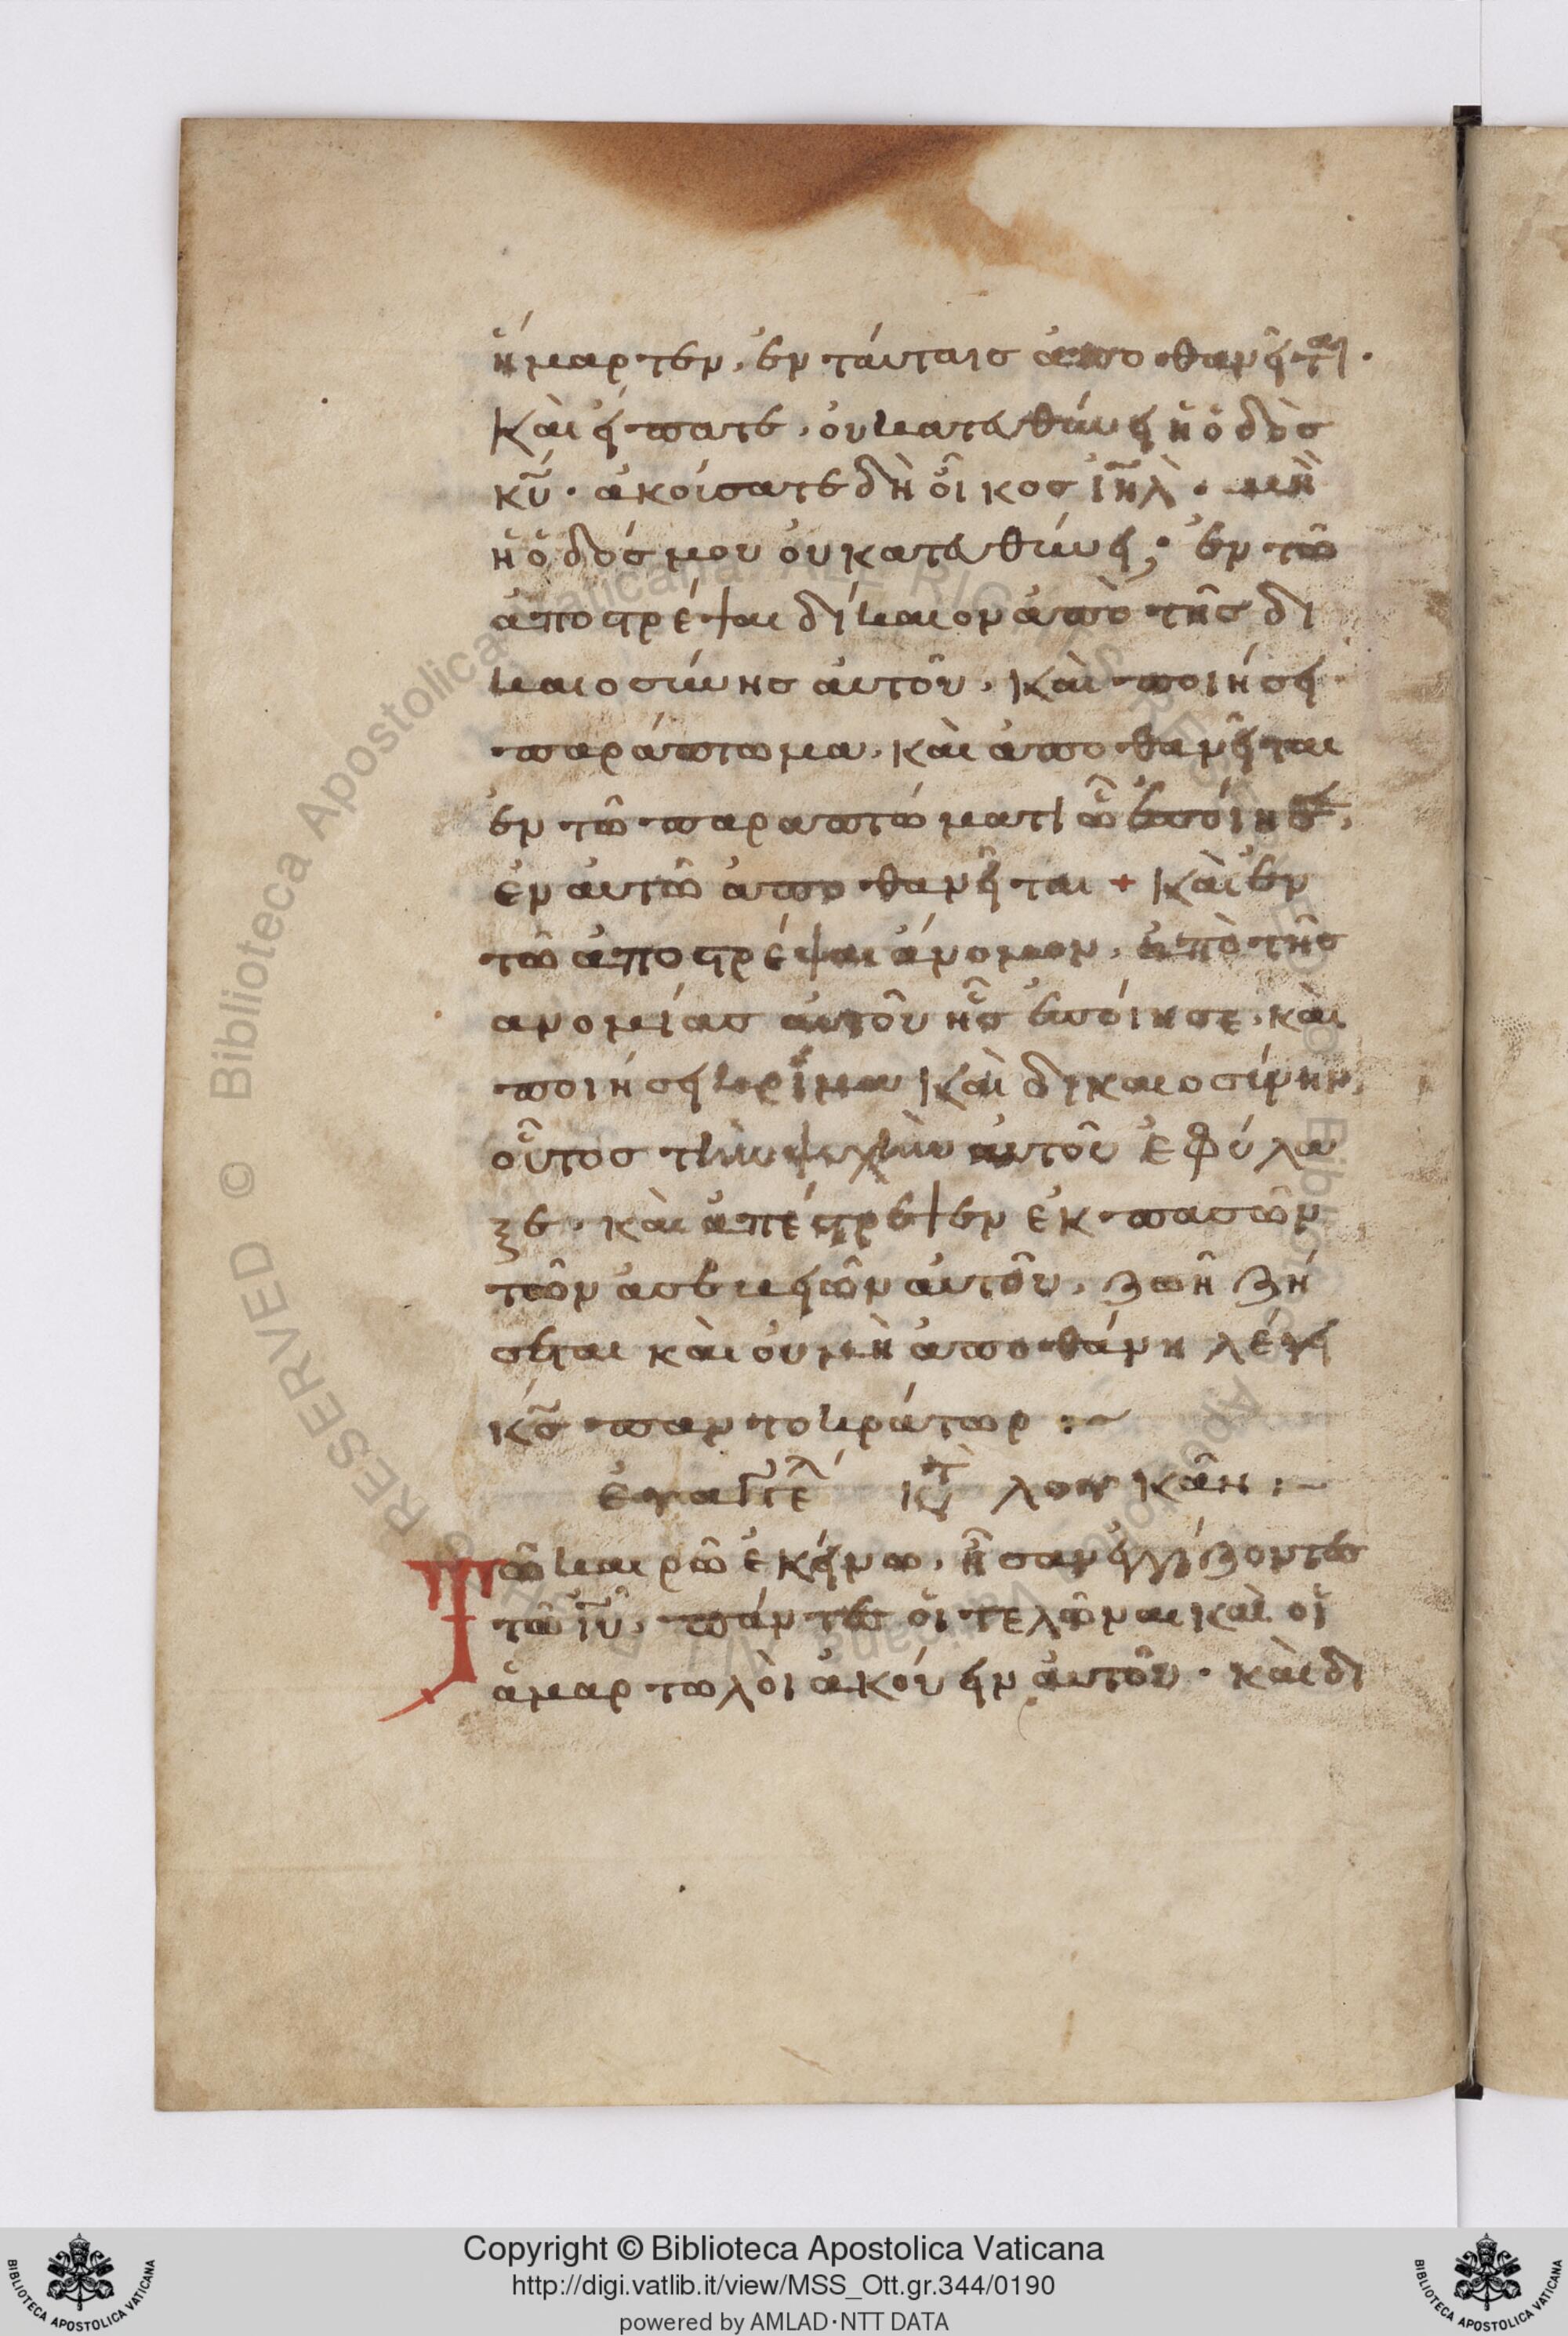 ἥμαρτεν, ἐν τάυταισ ἀποθανεῖται.
Κὰι είπατε, ὀυ κατευθύνει ἡ ὁδὸσ
κῡ· ἀκούσατε δὴ ὁῖκοσ ἰη̄λ· μὴ
ἡ ὁδόσ μου ὀυ κατευθύνει; ἐν τῶ
ἀποστρέψαι δίκαιον ἀπὸ τῆσ δι
καιοσύνησ ἀυτοῦ, κὰι ποιήσει
παράπτωμα, κὰι ἀποθανεῖται
ἐν τῶ παραπτώματι ὧ ἐποίησε,
ἐν ἀυτῶ ἀποθανεῖται + κὰι ἐν
τῶ ἀποστρέψαι ἄνομον, ἀπὸ τῆσ
ανομίασ ἀυτοῦ ἧσ ἐποίησε, κὰι
ποιήσει κρίμα κὰι δικαιοσύνην,
οὗτοσ τὴν ψυχὴν ἀυτοῦ ἐφύλα
ξε, κὰι ἀπέστρεψεν ἐκ πασῶν
τῶν ἀσεβειῶν ἀυτοῦ, ζωῆ ζή
σεται κὰι ὀυ μὴ ἀποθάνη λέγει
κσ̄ παντοκράτωρ :~
ἐυαγγελ κτ λουκᾶν :~
Τῶ καιρῶ ἐκείνω, ἦσαν ἐγγίζοντεσ
τῶ ιῡ, πάντεσ ὁι τελῶναι κὰι ὁι
ἁμαρτωλὸι ἀκούειν ἀυτοῦ· κὰι δι
© Biblioteca Apostolica Vaticana ALL RIGHTS RESERVED
Copyright © Biblioteca Apostolica Vaticana
http://digi.vatlib.it/view/MSS_Ott.gr.344/0190
powered by AMLAD·NTT DATA
BIBLIOTECA APOSTOLICA VATICANA
BIBLIOTECA APOSTOLICA VATICANA